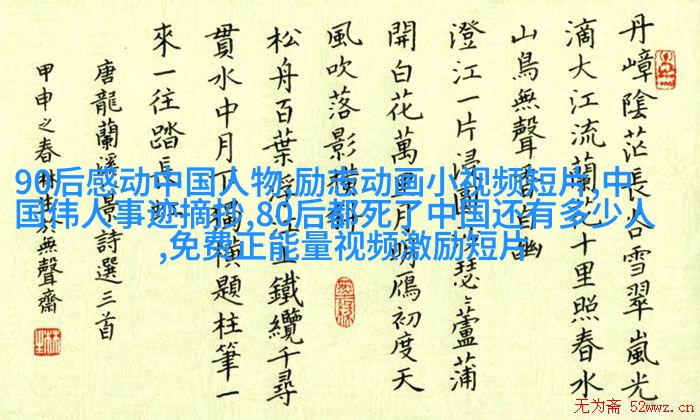 丹嶂陰茫長谷雪翠嵐光
滴大江流蘭花十里照春水
山鳥無聲香自幽
澄江一片浸瑟瑟蘆蒲
開白花萬里月明鴈初度天
風吹落影橫
松舟百葉浮江上鐵纜千尋
貫水中月下獨橫題柱筆一
來一往踏長
唐龍蘭溪景詩選三首
甲申之春林於無聲齋
90后感动中国人物,励志动画小视频短片,中
国伟人事迹摘抄,80后都死了中国还有多少人
,免费正能量视频激励短片
无为斋 52wwz.cn